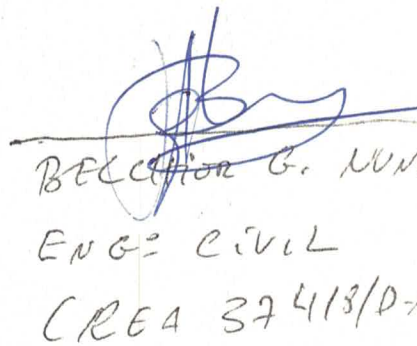 BELCHIOR G. NUN
ENGº CIVIL
CREA 37418/D-